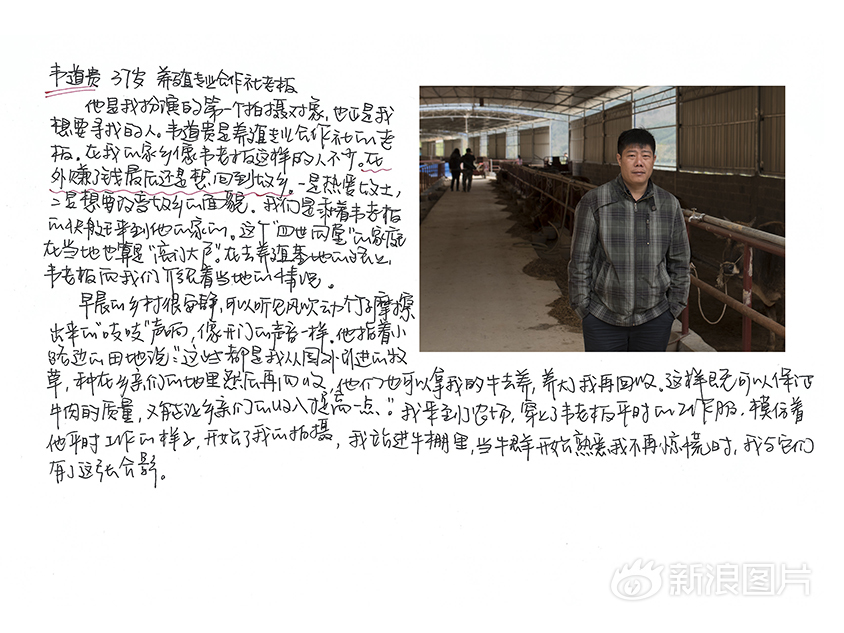 韦道贵 37岁 养殖专业合作社老板
他是我扮演的第一个拍摄对象，也正是我
想要寻找的人。韦道贵是养殖专业合作社的老
板。在我的家乡像韦老板这样的人不少。在
外赚了钱最后还是想回到故乡。一是热爱故土，
二是想要改善故乡的面貌。我们是乘着韦老板
的到他的家的。这个"四世同堂"的家庭
在当地也算是"高门大户"。在去养殖基地的路上，
韦老板向我们介绍着当地的情况。
早晨的乡村很安静，可以听见风吹动竹子摩擦
出来的"吱吱"声响，像开门的声音一样。他指着小
路边的田地说："这些都是我从国外引进的牧
草，种在乡亲们的地里然后再回收，他们也可以拿我的牛去养，养大我再回收。这样既可以保证
牛肉的质量，又能让乡亲们的收入提高一点。"我来到了农场，穿上了韦老板平时的工作服。模仿着
他平时工作的样子，开始了我的拍摄，我站进牛棚里，当牛群开始熟悉我不再惊慌时，我与它们
有了这张合影。
新浪图片